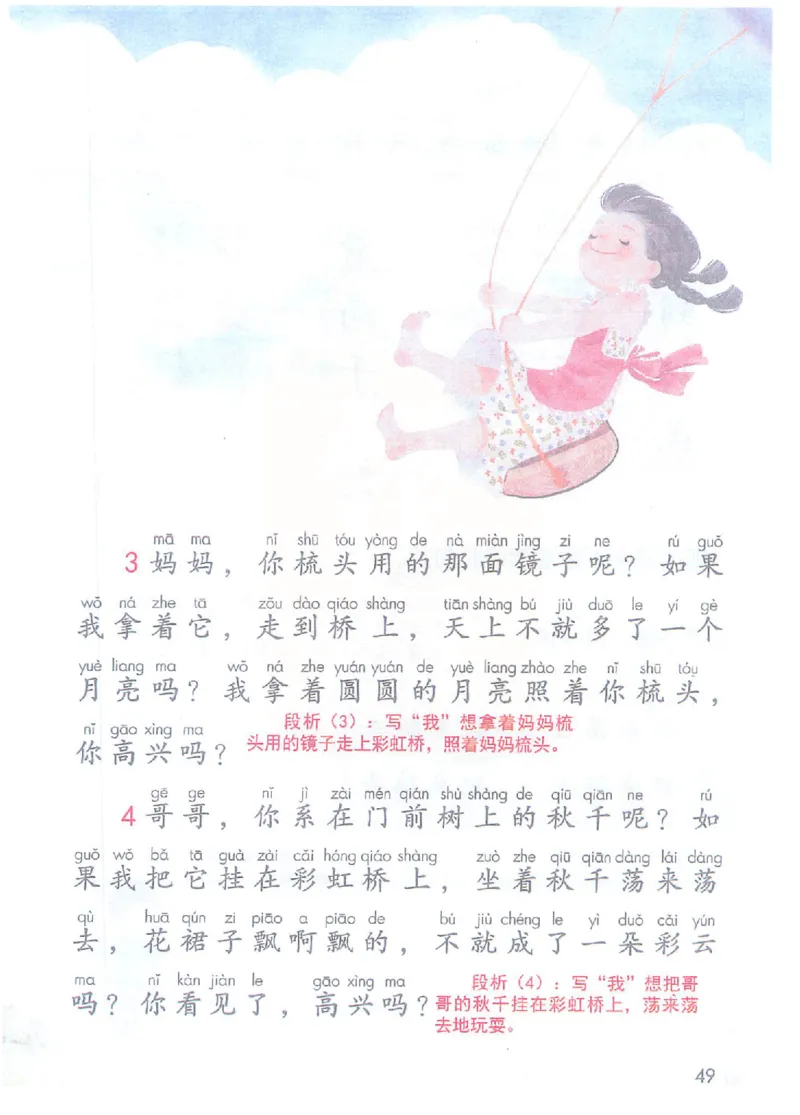 mā ma nǐ shū tóu yòng de nà miàn jìng zi ne rú guǒ
3 妈妈，你梳头用的那面镜子呢？如果
wǒ ná zhe tā zǒu dào qiáo shàng tiān shàng bú jiù duō le yí gè
我拿着它，走到桥上，天上不就多了一个
yuè liang ma wǒ ná zhe yuán yuán de yuè liang zhào zhe nǐ shū tóu
月亮吗？我拿着圆圆的月亮照着你梳头，
nǐ gāo xìng ma
你高兴吗？
段析（3）：写“我”想拿着妈妈梳
头用的镜子走上彩虹桥，照着妈妈梳头。
gē ge nǐ jì zài mén qián shù shàng de qiū qiān ne rú
4 哥哥，你系在门前树上的秋千呢？如
guǒ wǒ bǎ tā guà zài cǎi hóng qiáo shàng zuò zhe qiū qiān dàng lái dàng
果我把它挂在彩虹桥上，坐着秋千荡来荡
qù huā qún zi piāo a piāo de bú jiù chéng le yì duǒ cǎi yún
去，花裙子飘啊飘的，不就成了一朵彩云
ma nǐ kàn jiàn le gāo xìng ma
吗？你看见了，高兴吗？
段析（4）：写“我”想把哥
哥的秋千挂在彩虹桥上，荡来荡
去地玩耍。
49